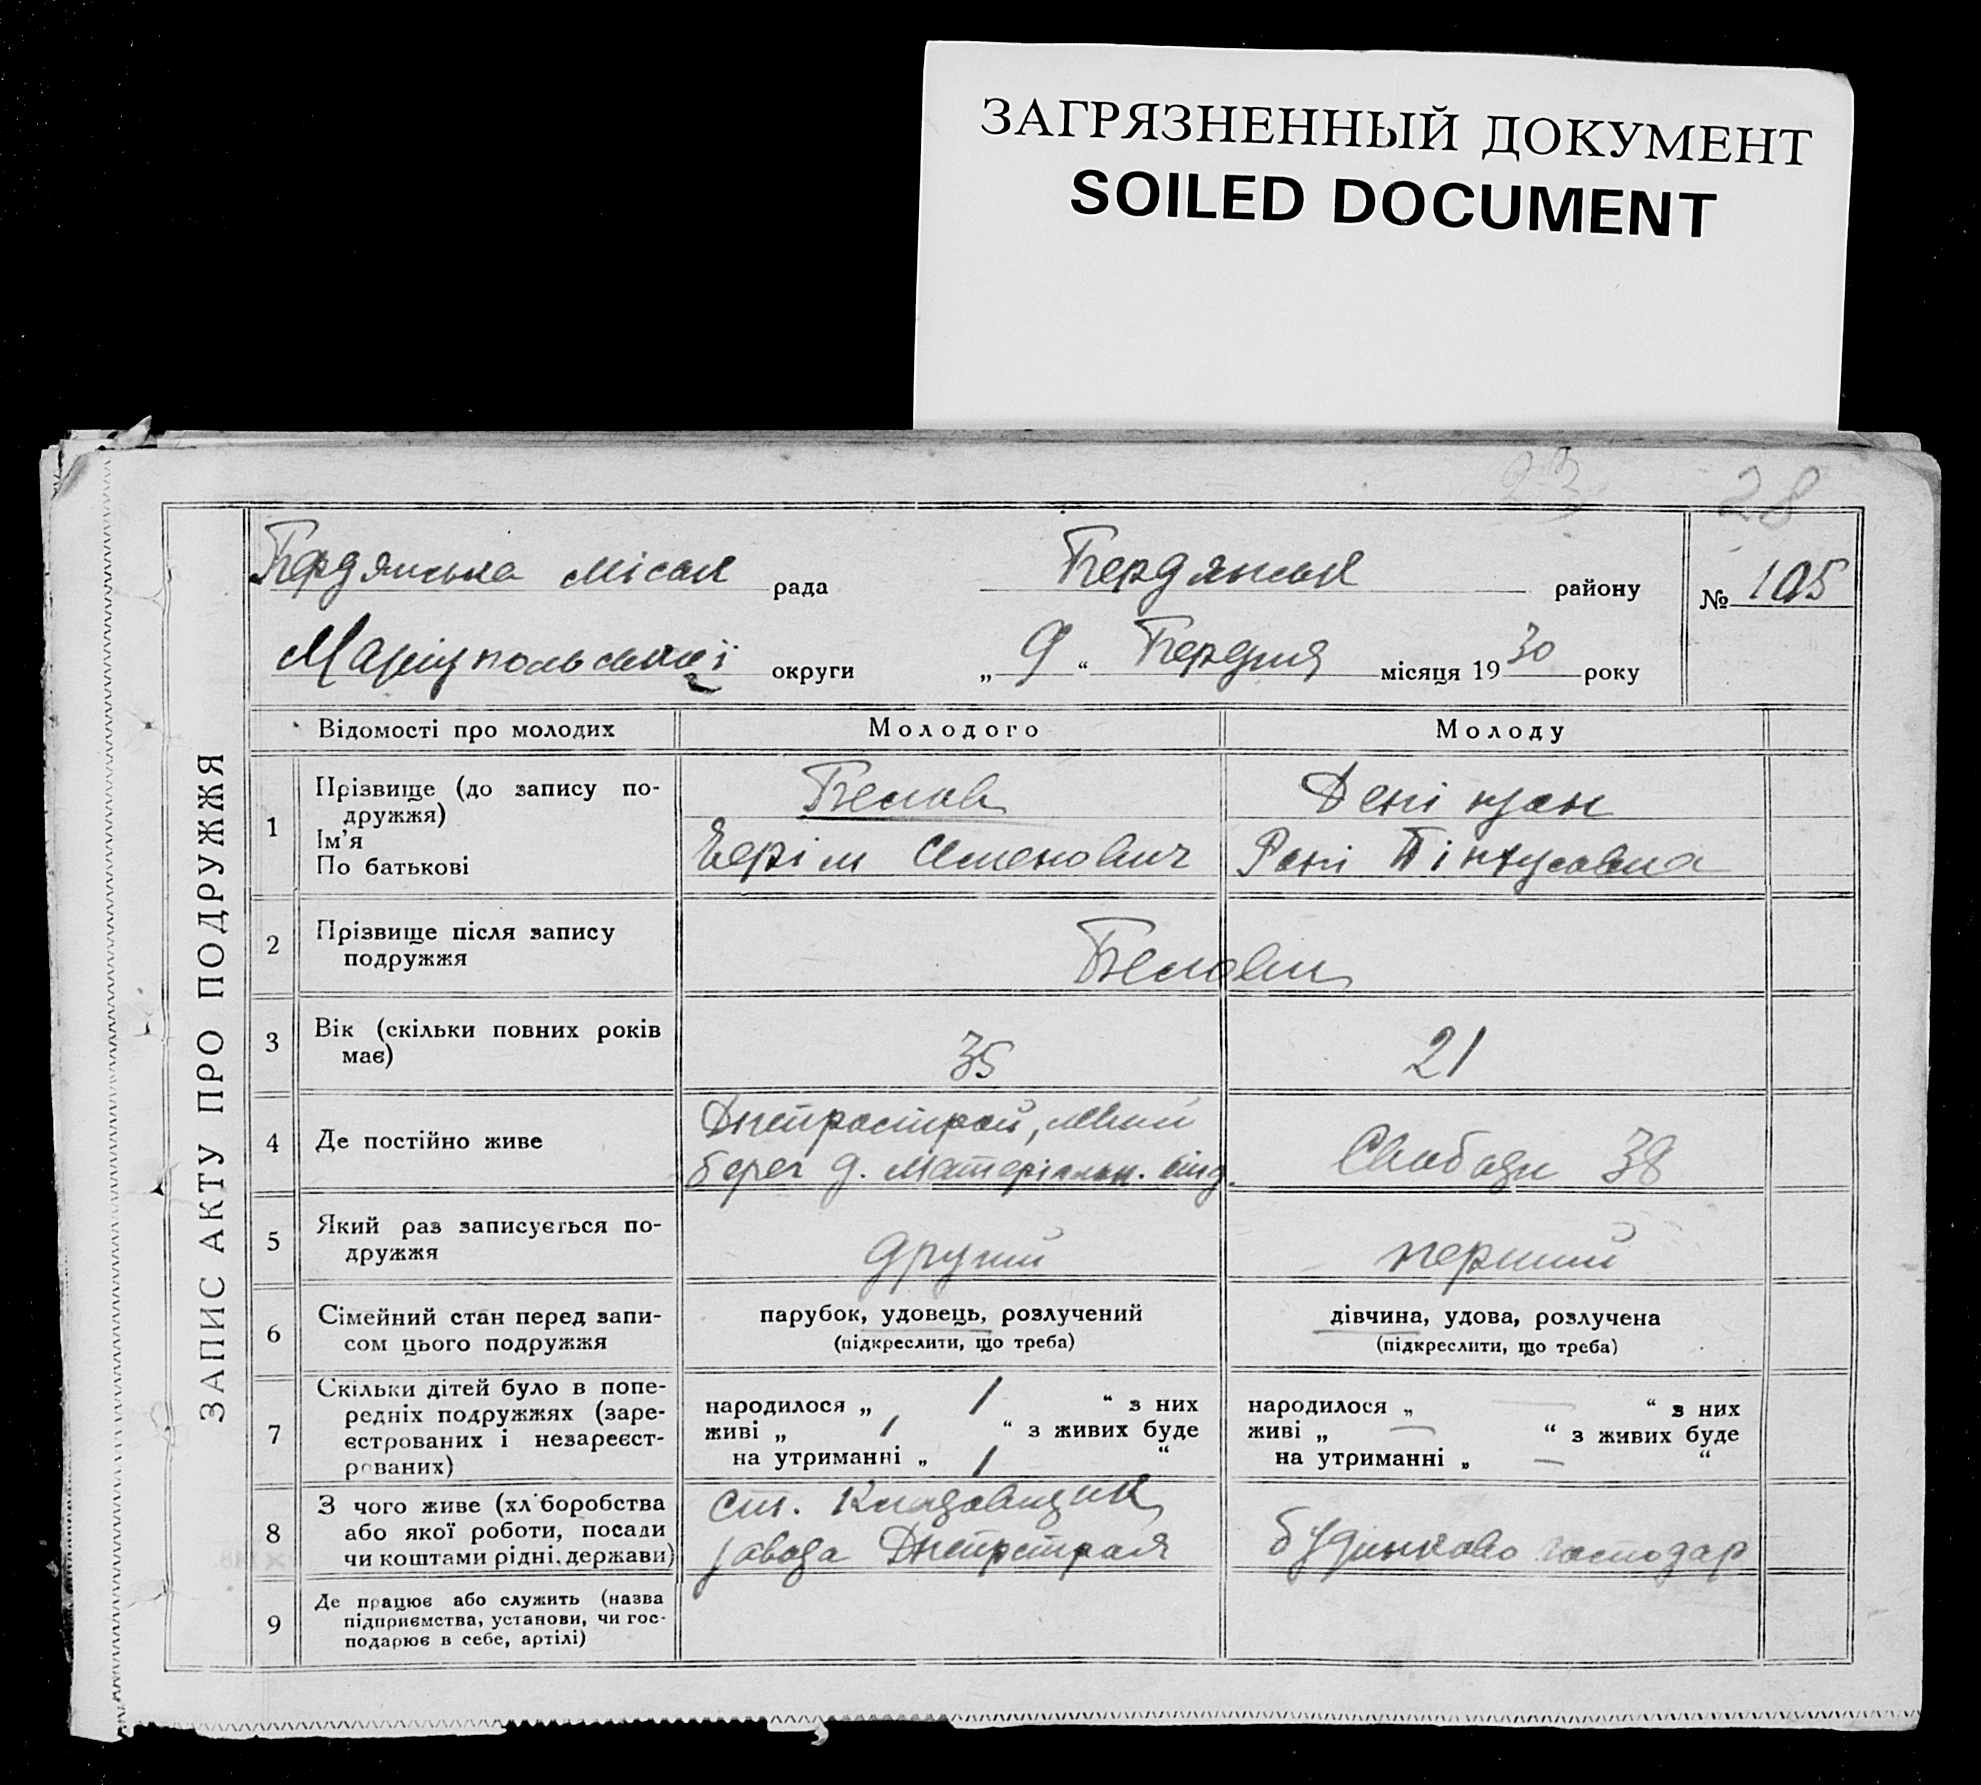 ЗАГРЯЗНЕННЫЙ ДОКУМЕНТ
SOILED DOCUMENT
23
28
ЗАПИС АКТУ ПРО ПОДРУЖЖЯ
Бердянська міськ рада Бердянськ району № 105
Маріупольської округи „ 9 “ Березня місяця 1930 року
Відомості про молодих Молодого Молоду
1 Прізвище (до запису по-
дружжя)
Ім’я
По батькові
Белов
Семенович
Рені Пінхусовна
2 Прізвище після запису
подружжя
Белови
3 Вік (скільки повних років
має)
35 21
4 Де постійно живе
Днепрострой, лівий
берег д. матеріальн. від. Свободи 38
5 Який раз записується по-
дружжя
другий перший
6 Сімейний стан перед запи-
сом цього подружжя
парубок, удовець, розлучений
(підкреслити, що треба)
дівчина, удова, розлучена
(підкреслити, що треба)
7 Скільки дітей було в попе-
редніх подружжях (заре-
єстрованих і незареєст-
рованих)
народилося „ 1 “ з них
живі „ 1 “ з живих буде
на утриманні „ 1 “
народилося „ — “ з них
живі „ — “ з живих буде
на утриманні „ — “
8 З чого живе (хліборобства
або якої роботи, посади
чи коштами рідні, держави)
ст. Кладовщик
завода Днепрстроя
будинково господар
9 Де працює або служить (назва
підприємства, установи, чи гос-
подарює в себе, артілі)